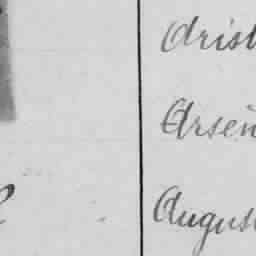 Arist
Arsèn
August